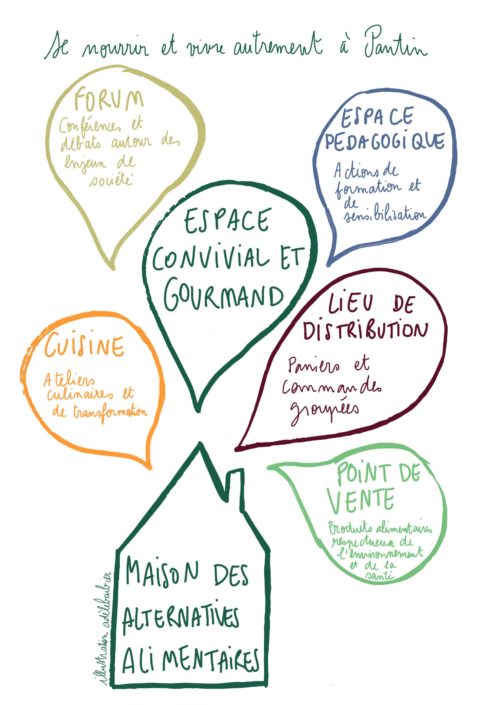 Se nourrir et vivre autrement à Pantin
FORUM
Conférences et
débats autour des
enjeux de
société
ESPACE
PEDAGOGIQUE
Actions de
formation et
de
sensibilisation
ESPACE
CONVIVIAL ET
GOURMAND
LIEU DE
DISTRIBUTION
Paniers et
commandes
groupées
CUISINE
Ateliers
culinaires et
de transformation
POINT DE
VENTE
Produits alimentaires
respectueux de
l'environnement
et de la
santé
MAISON DES
ALTERNATIVES
ALIMENTAIRES
illustration adèlebarbier